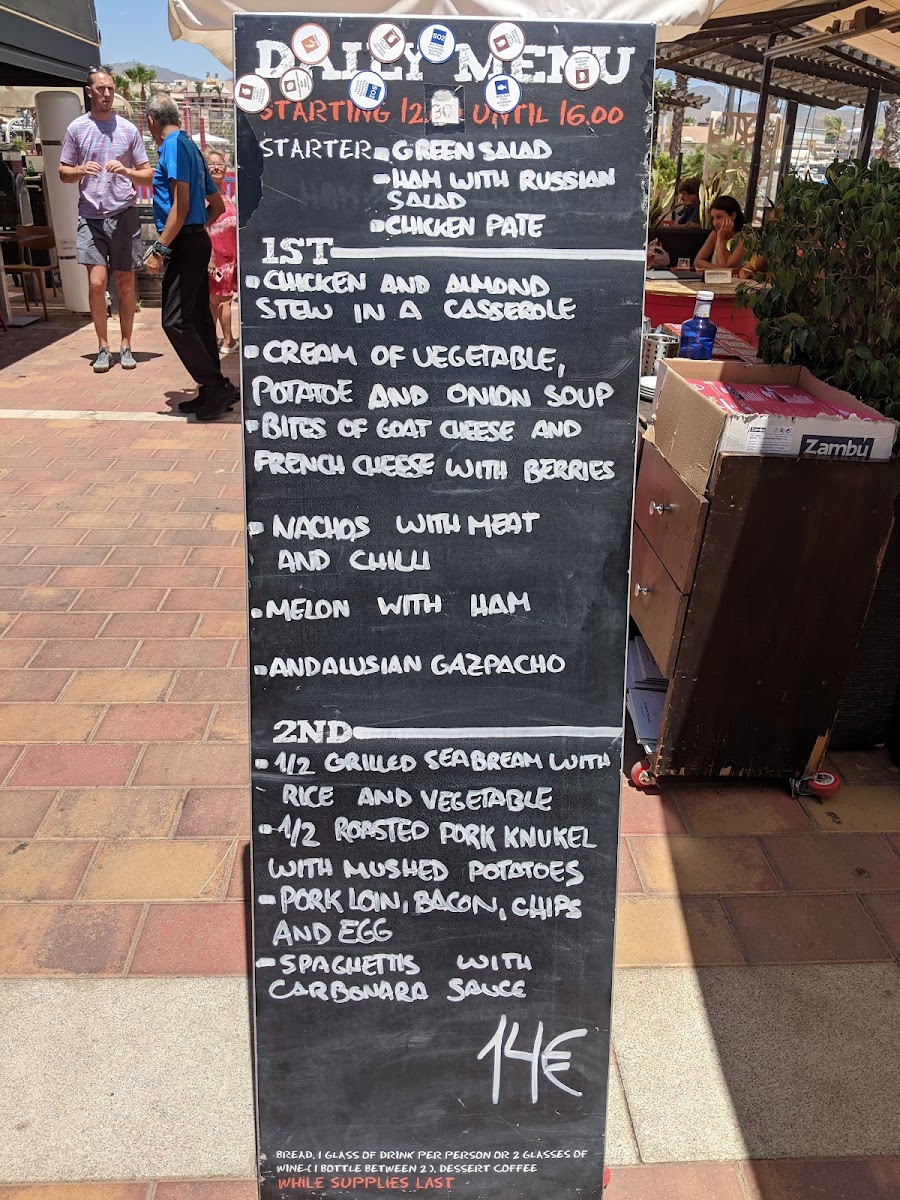 DAILY MENU
SO2
SO2
STARTING 12.30 UNTIL 16.00
STARTER - GREEN SALAD
- HAM WITH RUSSIAN
SALAD
- CHICKEN PATE
1ST
- CHICKEN AND ALMOND
STEW IN A CASSEROLE
- CREAM OF VEGETABLE,
POTATOE AND ONION SOUP
- BITES OF GOAT CHEESE AND
FRENCH CHEESE WITH BERRIES
- NACHOS WITH MEAT
AND CHILLI
- MELON WITH HAM
- ANDALUSIAN GAZPACHO
2ND
- 1/2 GRILLED SEABREAM WITH
RICE AND VEGETABLE
- 1/2 ROASTED PORK KNUKEL
WITH MUSHED POTATOES
- PORK LOIN, BACON, CHIPS
AND EGG
- SPAGHETTIS WITH
CARBONARA SAUCE
14€
BREAD, 1 GLASS OF DRINK PER PERSON OR 2 GLASSES OF
WINE ( 1 BOTTLE BETWEEN 2 ), DESSERT COFFEE
WHILE SUPPLIES LAST
Zambú